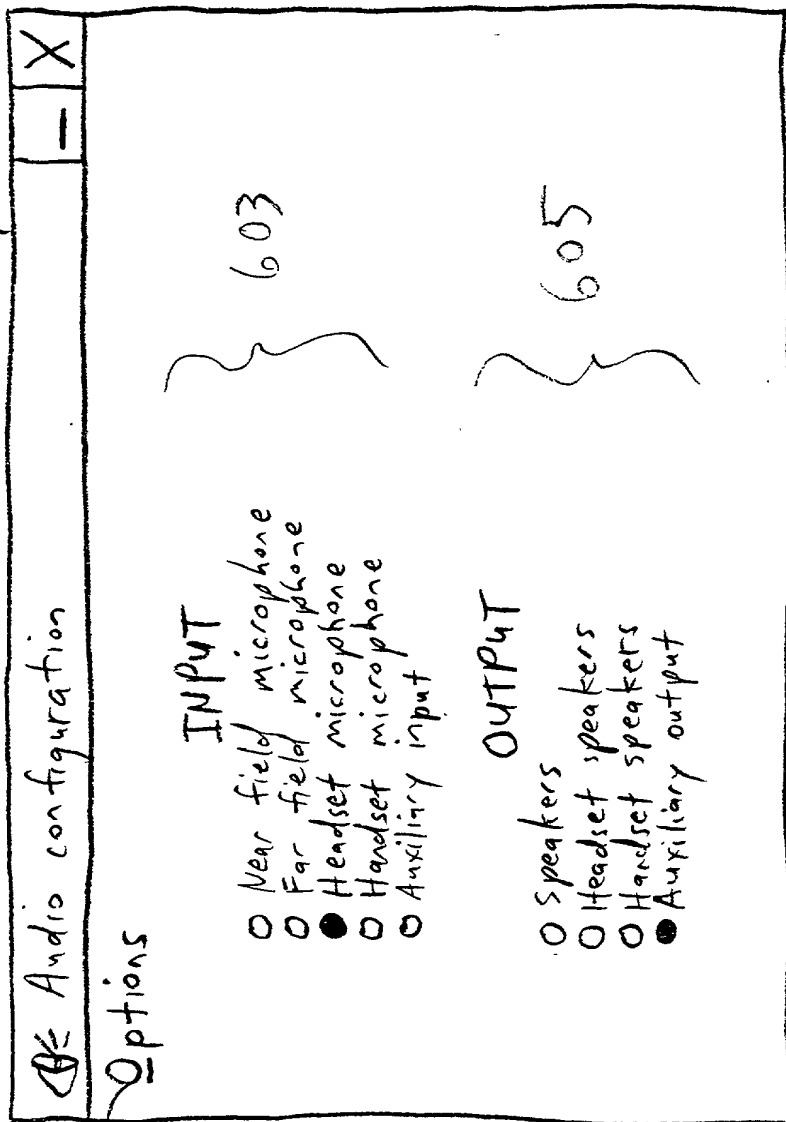 Audio configuration
Options
INPUT
Near field microphone
Far field microphone
Headset microphone
Handset microphone
Auxiliary input
603
OUTPUT
Speakers
Headset speakers
Handset speakers
Auxiliary output
605